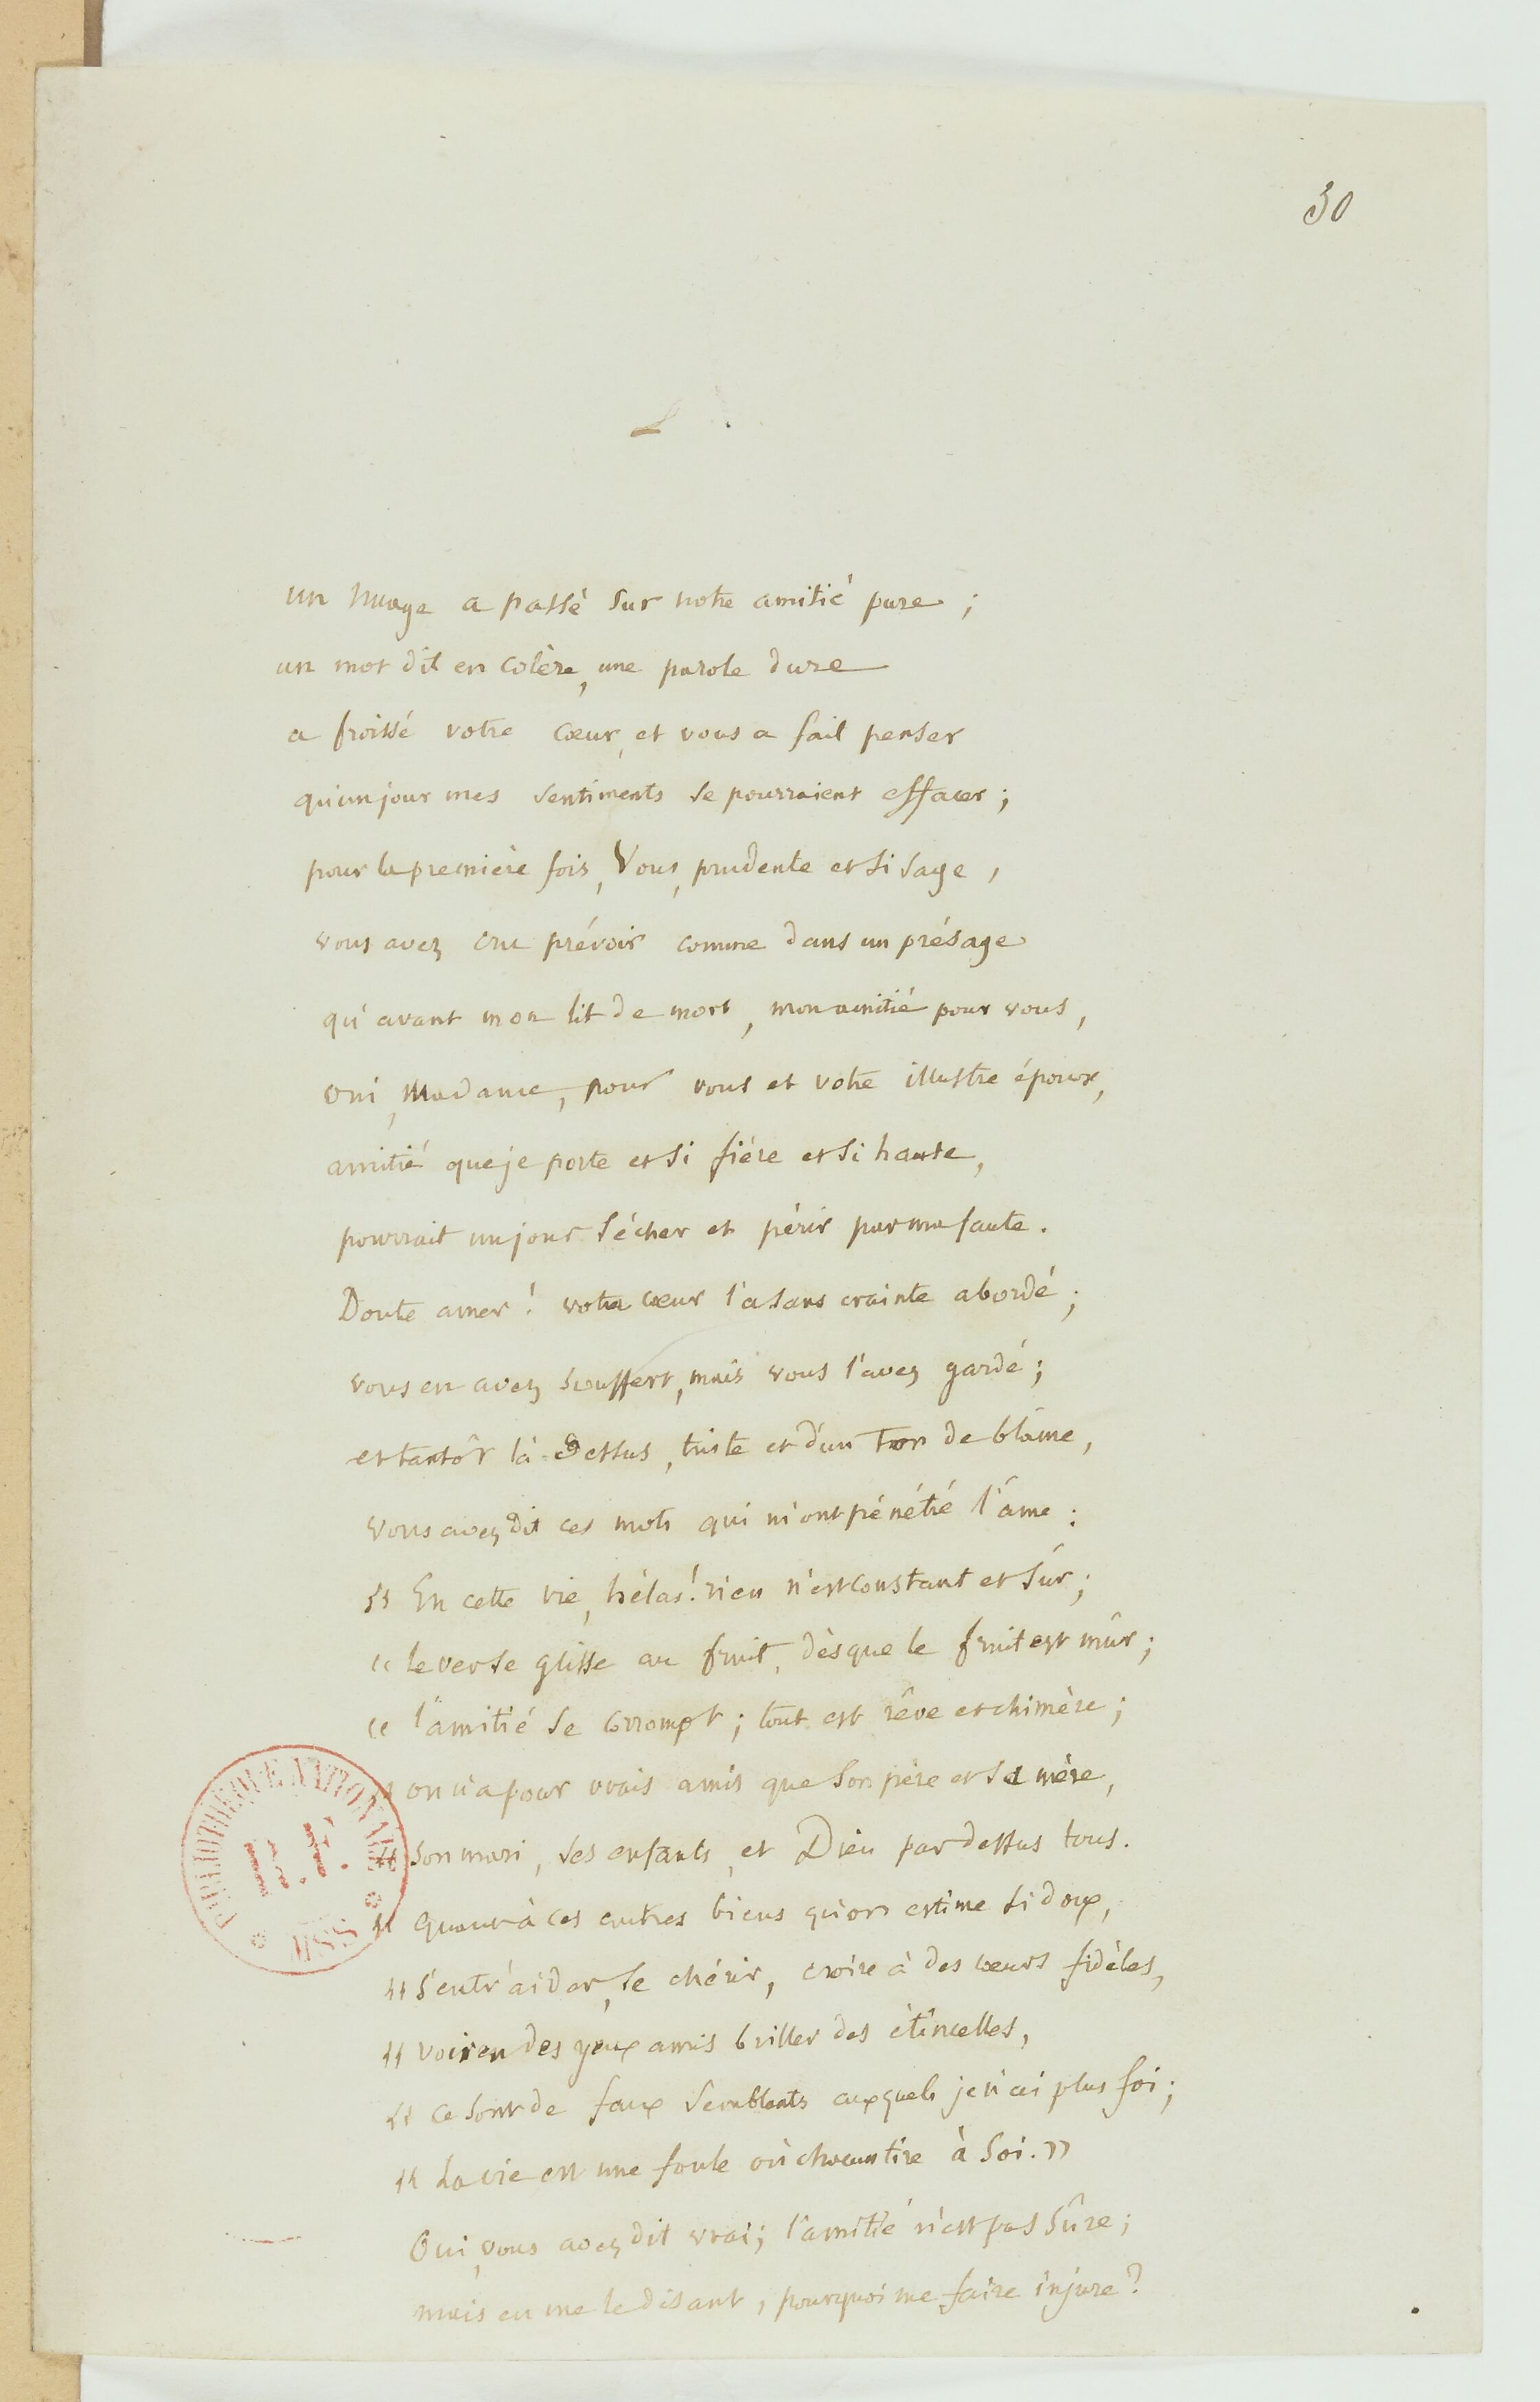 30
un nuage a passé sur notre amitié pure ;
un mot dit en colère, une parole dure
a froissé votre cœur, et vous a fait penser
qu'un jour mes sentiments se pourraient effacer ;
pour la première fois, Vous, prudente et si sage,
vous avez cru prévoir comme dans un présage
qu'avant mon lit de mort, mon amitié pour vous,
oui, Madame, pour vous et votre illustre époux,
amitié que je porte et si fière et si haute,
pourrait un jour sécher et périr par ma faute.
Doute amer ! votre cœur l'a sans crainte abordé ;
vous en avez souffert, mais vous l'avez gardé ;
et tantôt là-dessus, triste et d'un ton de blâme,
vous avez dit ces mots qui m'ont pénétré l'âme :
« En cette vie, hélas ! rien n'est constant et sûr ;
« le ver se glisse au fruit, dès que le fruit est mûr ;
« l'amitié se corrompt ; tout est rêve et chimère ;
« on n'a pour vrais amis que son père et sa mère,
« son mari, ses enfants, et Dieu par dessus tous.
« Quant à ces autres biens qu'on estime si doux,
« s'entr'aider, se chérir, croire à des cœurs fidèles,
« voir en des yeux amis briller des étincelles,
« ce sont de faux semblants auxquels je n'ai plus foi ;
« La vie est une foule où chacun tire à soi. »
Oui, vous avez dit vrai ; l'amitié n'est pas sûre ;
mais en me le disant, pourquoi me faire injure ?
BIBLIOTHÈQUE NATIONALE
R.F.
MSS